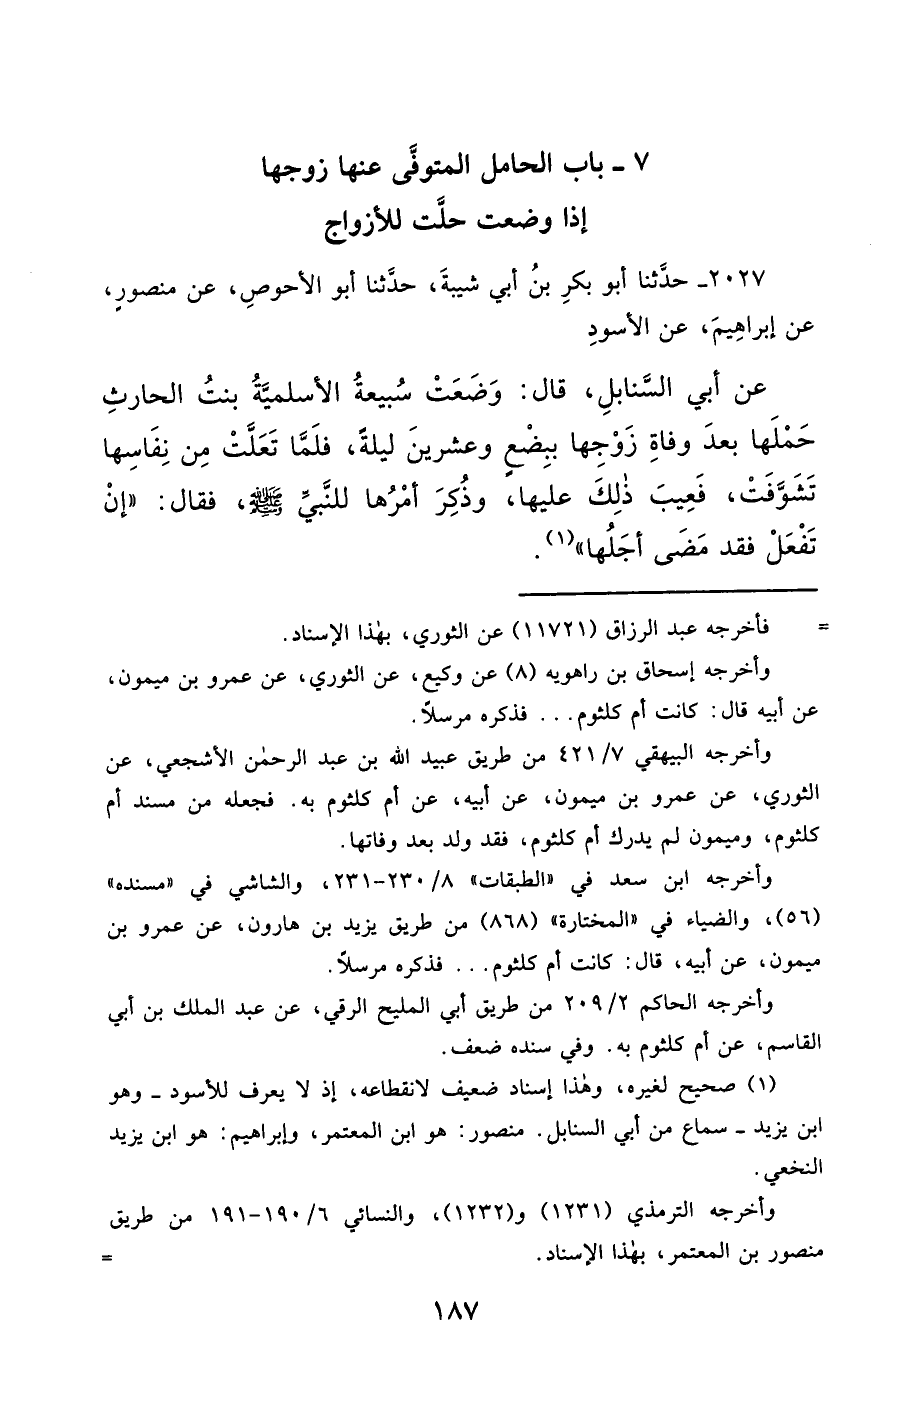 ٧ ـ باب الحامل المتوفَّى عنها زوجها
إذا وضعت حلَّت للأزواج
٢٠٢٧ـ حدَّثنا أبو بكرِ بنُ أبي شيبةَ، حدَّثنا أبو الأحوصِ، عن منصورٍ،
عن إبراهِيمَ، عن الأسودِ
عن أبي السَّنابلِ، قال: وَضَعَتْ سُبيعةُ الأسلميَّةُ بنتُ الحارثِ
حَمْلَها بعدَ وفاةِ زَوْجِها بِبِضْعٍ وعشرينَ ليلةً، فلَمَّا تَعَلَّتْ مِن نِفَاسِها
تَشَوَّفَتْ، فَعِيبَ ذٰلِكَ عليها، وذُكِرَ أمْرُها للنَّبيِّ ﷺ، فقال: «إنْ
تَفْعَلْ فقد مَضَى أجَلُها»(١).
= فأخرجه عبد الرزاق (١١٧٢١) عن الثوري، بهٰذا الإسناد.
وأخرجه إسحاق بن راهويه (٨) عن وكيع، عن الثوري، عن عمرو بن ميمون،
عن أبيه قال: كانت أم كلثوم... فذكره مرسلاً.
وأخرجه البيهقي ٤٢١/٧ من طريق عبيد الله بن عبد الرحمٰن الأشجعي، عن
الثوري، عن عمرو بن ميمون، عن أبيه، عن أم كلثوم به. فجعله من مسند أم
كلثوم، وميمون لم يدرك أم كلثوم، فقد ولد بعد وفاتها.
وأخرجه ابن سعد في «الطبقات» ٨/ ٢٣٠-٢٣١، والشاشي في «مسنده»
(٥٦)، والضياء في «المختارة» (٨٦٨) من طريق يزيد بن هارون، عن عمرو بن
ميمون، عن أبيه، قال: كانت أم كلثوم... فذكره مرسلاً.
وأخرجه الحاكم ٢٠٩/٢ من طريق أبي المليح الرقي، عن عبد الملك بن أبي
القاسم، عن أم كلثوم به. وفي سنده ضعف.
(١) صحيح لغيره، وهٰذا إسناد ضعيف لانقطاعه، إذ لا يعرف للأسود ـ وهو
ابن يزيد ـ سماع من أبي السنابل. منصور: هو ابن المعتمر، وإبراهيم: هو ابن يزيد
النخعي.
وأخرجه الترمذي (١٢٣١) و(١٢٣٢)، والنسائي ٦/ ١٩٠-١٩١ من طريق
منصور بن المعتمر، بهٰذا الإسناد. =
١٨٧